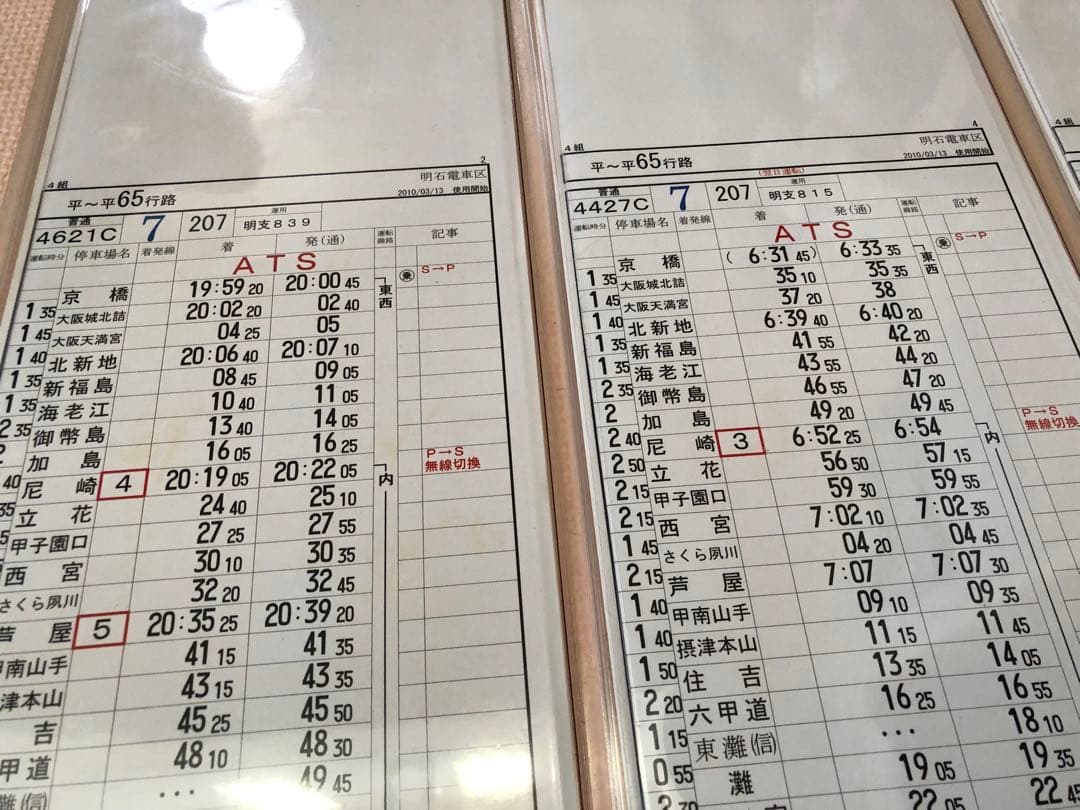 2
4組 明石電車区
平～平65行路 2010/03/13 使用開始
普通
4621C 7 207 運用 明支839
運転時分 停車場名 着発線 着 発(通) 運転線路 記事
ATS
京橋 19:59 20 20:00 45 東西 乗 S→P
1 35 大阪城北詰 20:02 20 02 40
1 45 大阪天満宮 04 25 05
1 40 北新地 20:06 40 20:07 10
1 35 新福島 08 45 09 05
1 35 海老江 10 40 11 05
2 35 御幣島 13 40 14 05
加島 16 05 16 25 P→S
40 尼崎 4 20:19 05 20:22 05 内 無線切換
35 立花 24 40 25 10
甲子園口 27 25 27 55
西宮 30 10 30 35
さくら夙川 32 20 32 45
芦屋 5 20:35 25 20:39 20
甲南山手 41 15 41 35
津本山 43 15 43 35
吉 45 25 45 50
甲道 48 10 48 30
灘(信) ・・・ 49 45
4
4組 明石電車区
平～平65行路 2010/03/13 使用開始
(翌日運転)
普通
4427C 7 207 運用 明支815
運転時分 停車場名 着発線 着 発(通) 運転線路 記事
ATS
京橋 ( 6:31 45) 6:33 35 東西 乗 S→P
1 35 大阪城北詰 35 10 35 35
1 45 大阪天満宮 37 20 38
1 40 北新地 6:39 40 6:40 20
1 35 新福島 41 55 42 20
1 35 海老江 43 55 44 20
2 35 御幣島 46 55 47 20
2 加島 49 20 49 45 P→S
2 40 尼崎 3 6:52 25 6:54 内 無線切換
2 50 立花 56 50 57 15
2 15 甲子園口 59 30 59 55
2 15 西宮 7:02 10 7:02 35
1 45 さくら夙川 04 20 04 45
2 15 芦屋 7:07 7:07 30
1 40 甲南山手 09 10 09 35
1 40 摂津本山 11 15 11 45
1 50 住吉 13 35 14 05
2 20 六甲道 16 25 16 55
1 15 東灘(信) ・・・ 18 10
0 55 灘 19 05 19 35
22 05 22 45
4組